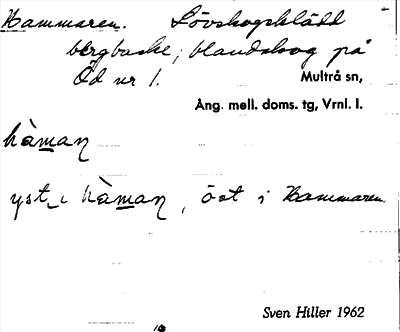 Hammaren. Lövskogsklädd
bergbacke, blandskog på
Öd nr 1.
Multrå sn,
Ång. mell. doms. tg, Vrnl. l.
hàman
yst i hàman, öst i Hammaren
Sven Hiller 1962